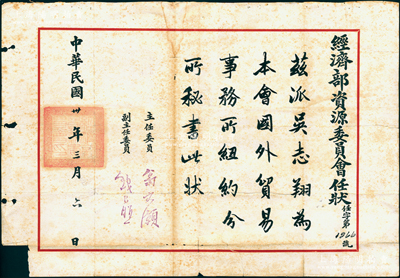 經濟部資源委員會任狀
任字第1944號
茲派吳志翔為
本會國外貿易
事務所紐約分
所秘書此狀
主任委員
副主任委員 錢昌照
中華民國卅年三月六日